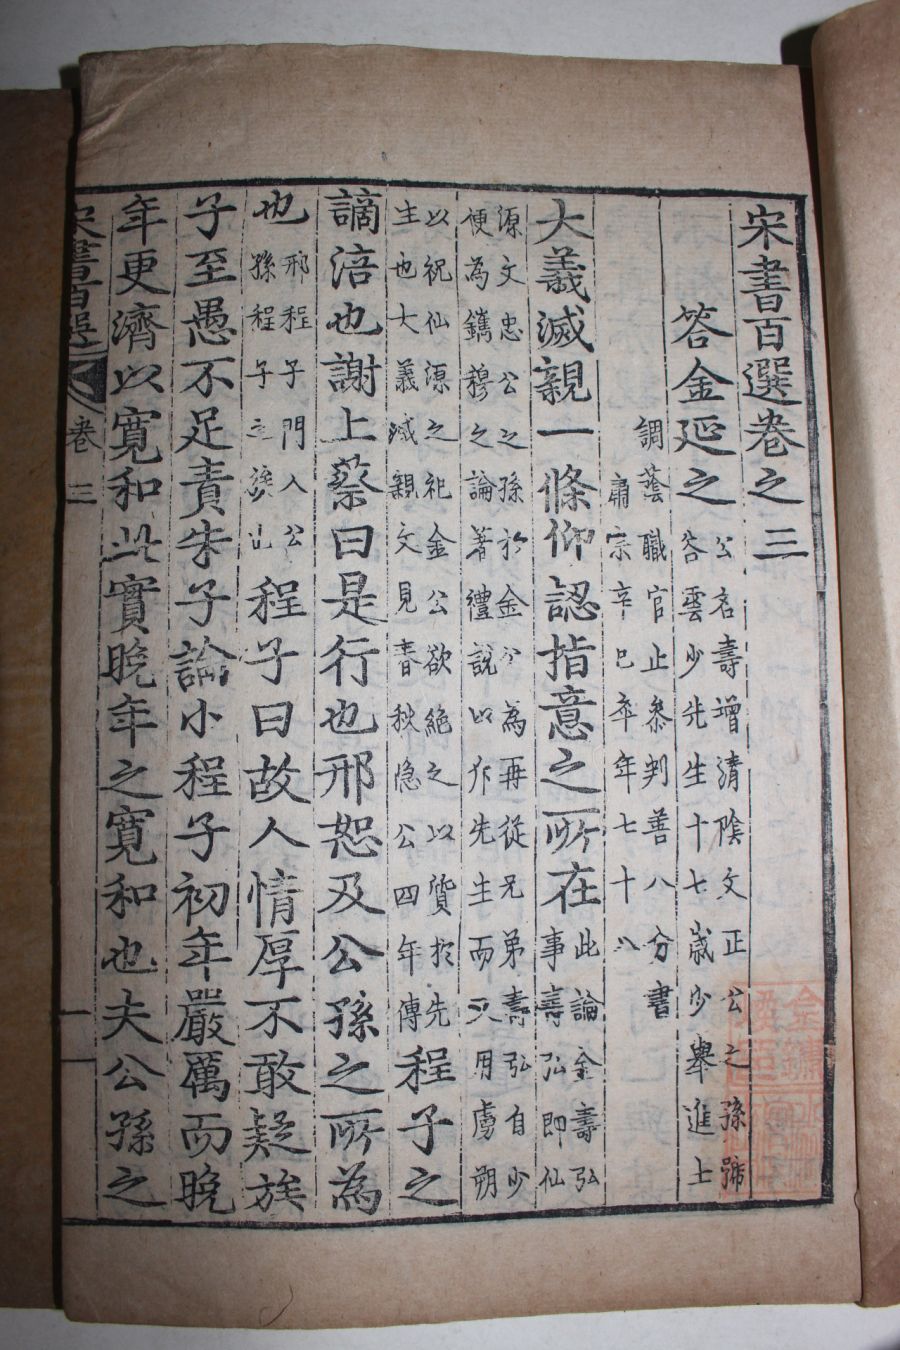 宋書百選卷之三
答金延之
公名壽增清陰文正公之孫號
谷雲少先生十七歲少舉進上
調蔭職官止參判善八分書
肅宗辛巳卒年七十八
大義滅親一條仰認指意之所在
此論金壽弘
事壽弘即仙
源文忠公之孫於金公為再從兄弟壽弘自少
便為鑴穆之論著禮說以斥先生而又用虜朔
以祝仙源之祀金公欲絕之以質於先
生也大義滅親文見春秋隐公四年傳
程子之
謫涪也謝上蔡曰是行也邢恕及公孫之所為
也
邢程子門人公
孫程子之族也
程子曰故人情厚不敢疑族
子至愚不足責朱子論小程子初年嚴厲而晚
年更濟以寬和此實晚年之寬和也夫公孫之
宋書百選 卷三 一